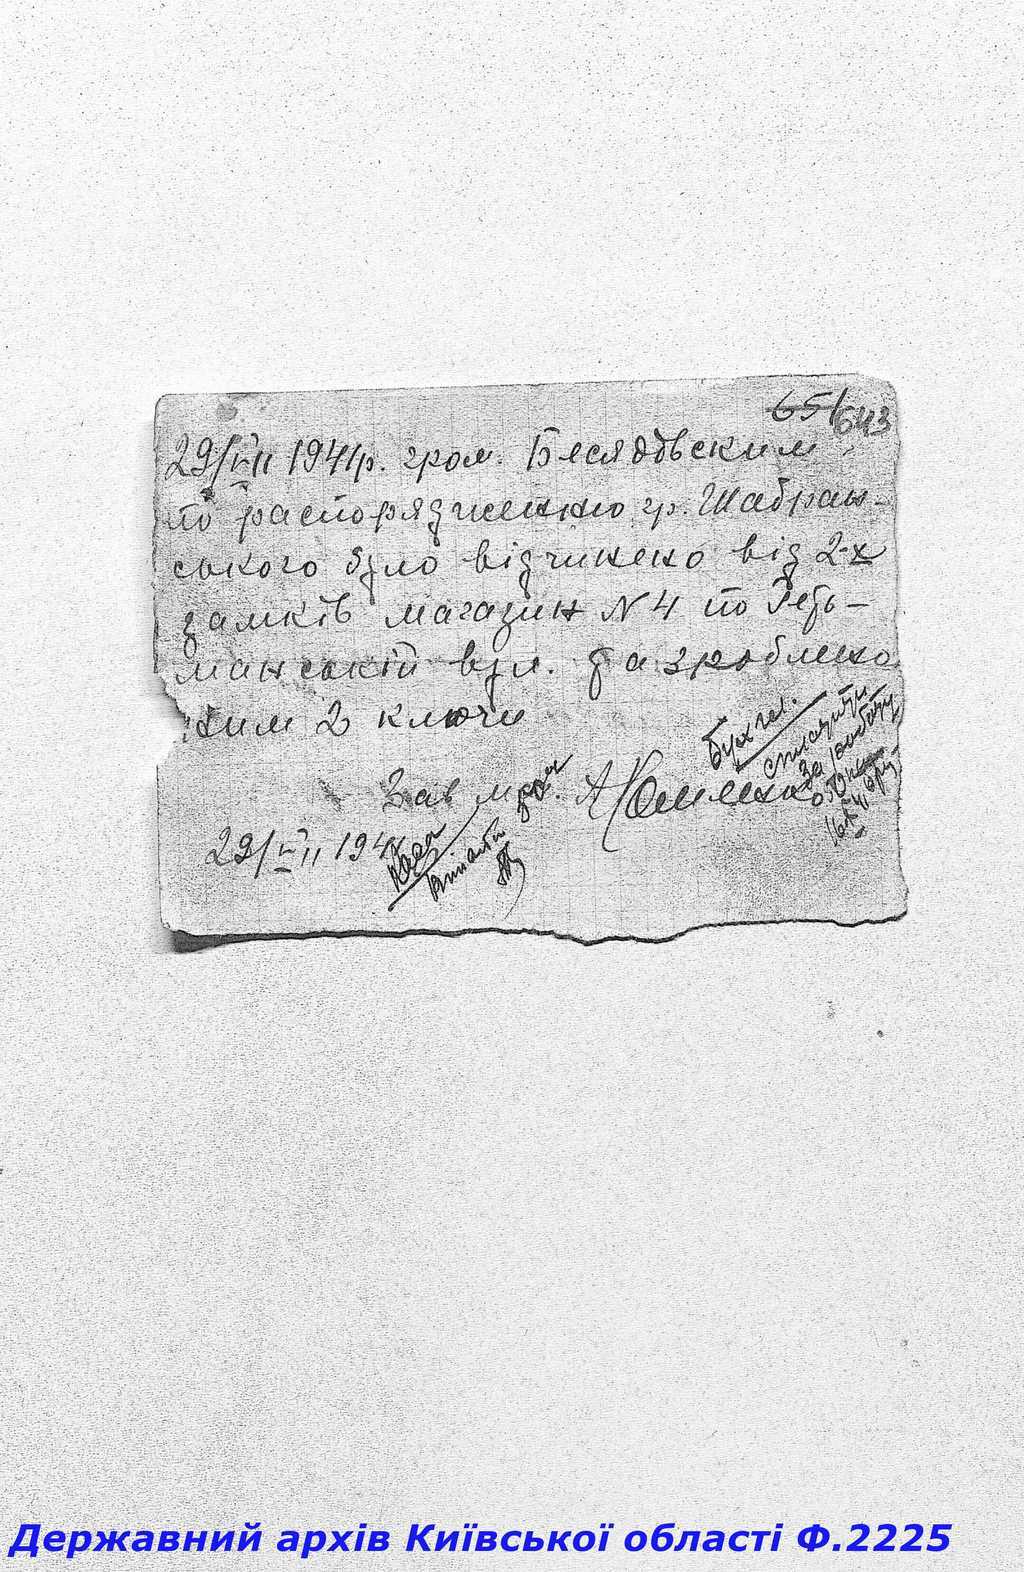 65/643
29/VII 1941р. гром. Беседовским
по распорядженню гр. Шабран-
ського було відчинено від 2-х
замків магазин N 4 по Геть-
манській вул. та зроблено
ним 2 ключи
Зав маг.
29/VII 1941
Бухгал.
списати
за роботу
Державний архів Київської області Ф.2225